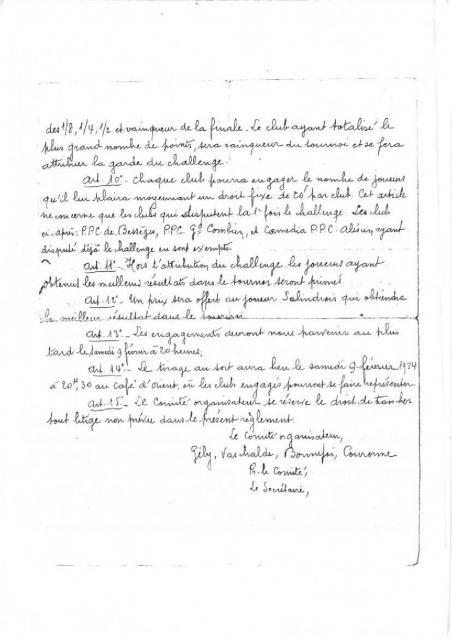 des 1/8, 1/4, 1/2 et vainqueur de la finale. Le club ayant totalisé le
plus grand nombre de points, sera vainqueur du tournoi et se fera
attribuer la garde du challenge.
Art. 10° - Chaque club pourra engager le nombre de joueurs
qu'il lui plaira moyennant un droit fixe de 20 par club. Cet article
ne concerne que les clubs qui disputent la 1e fois le challenge. Les club
ci-après: P.P.C de Bessèges, P.P.C. Gd Combien, et Comedia P.P.C. Alésien, ayant
disputé déjà le challenge en sont exempts.
Art. 11° - Hors l'attribution du challenge les joueurs ayant
obtenus les meilleurs résultats dans le tournoi seront primés.
Art. 12° - Un prix sera offert au joueur Salindrois qui obtiendra
le meilleur résultat dans le tournoi.
Art. 13° - Les engagements devront nous parvenir au plus
tard le samedi 9 février à 20 heures,
Art. 14° - Le tirage au sort aura lieu le samedi 9 février 1934
à 20H,30 au café d'orient, où les club engagés pourront se faire représenter.
Art. 15 - Le Comité organisateur se réserve le droit de trancher
tout litige non prévu dans le présent règlement.
Le Comité organisateur,
Gély, Vaschalde, Bonnefoi, Couronne
P. le Comité,
Le Secrétaire,